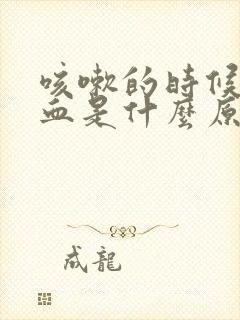 咳嗽的時候
血是什麼原
成龍